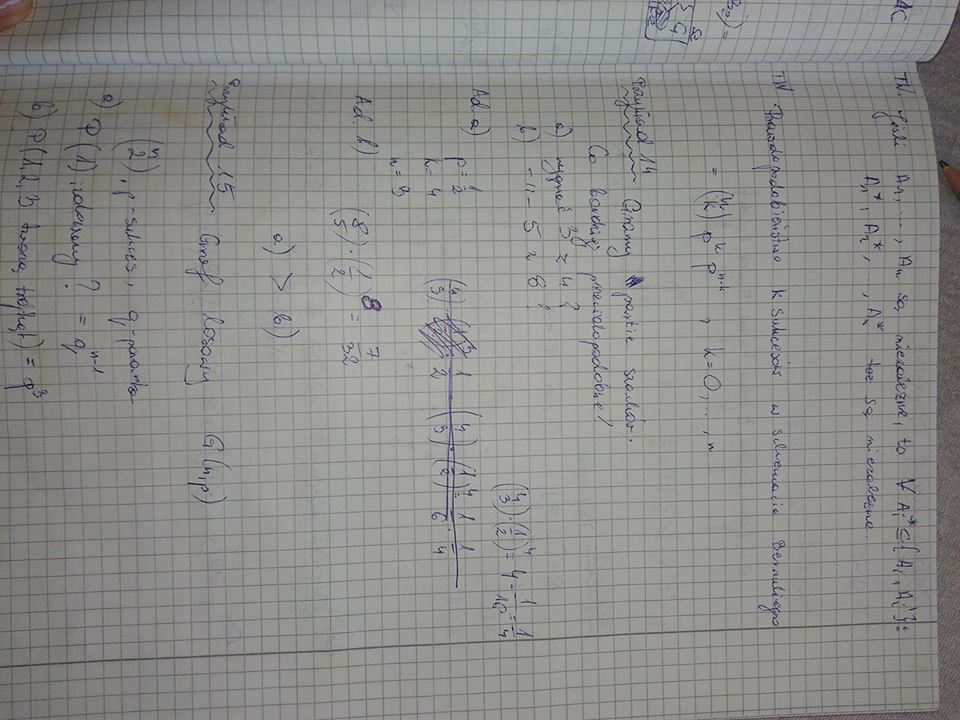 AC
TW. Jeśli A₁, ..., Aₙ są niezależne, to ∀ Aᵢ* ⊆ {Aᵢ, Aᵢ'}:
A₁*, A₂*, ..., Aₙ* też są niezależne.
TW Prawdopodobieństwo k sukcesów w schemacie Bernuliego
= (n k) pᵏ pⁿ⁻ᵏ , k = 0, ..., n
Przykład 14 Gramy partie szachów.
Co bardziej prawdopodobne?
a) wygrać 3 z 4?
b) -11- 5 z 8?
(4 3)·(1/2)⁴ = 4·1/16 = 1/4
Ad. a)
p = 1/2
k = 4
n = 3
Ad. b) (8 5)·(1/2)⁸ = 7/32
a) > b)
Przykład 15 Graf losowy G(n,p)
(n 2), p-sukces, q-porażka
a) P(1), izolowany? = qⁿ⁻¹
b) P(1,2,3 tworzą trójkąt) = p³